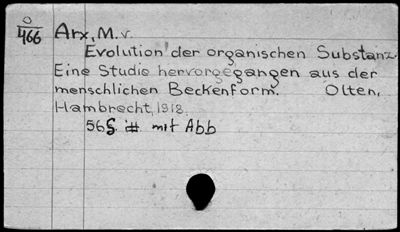 O
466
Arx, M. v.
Evolution der organischen Substanz.
Eine Studie hervorgegangen aus der
menschlichen Beckenform. Olten,
Hambrecht, 1918.
56S. mit Abb